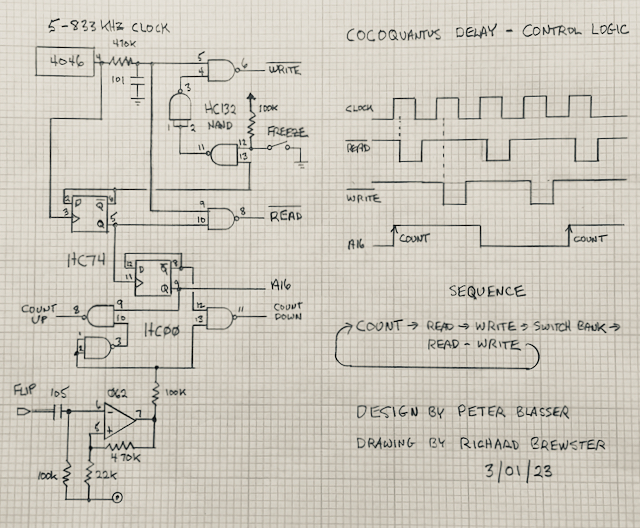 5-833 KHZ CLOCK
COCOQUANTUS DELAY - CONTROL LOGIC
470K
4046
4
101
5
4
6
WRITE
3
1
2
HC132
NAND
100K
FREEZE
11
12
13
CLOCK
READ
WRITE
A16
COUNT
COUNT
2
D
Q
6
3
Q
5
9
10
8
READ
HC74
12
D
Q
8
11
Q
9
A16
COUNT
UP
8
9
10
HC00
12
13
11
COUNT
DOWN
1
2
3
SEQUENCE
COUNT → READ → WRITE → SWITCH BANK →
READ - WRITE
FLIP
105
062
6
-
5
+
7
100K
470K
100K
22K
DESIGN BY PETER BLASSER
DRAWING BY RICHARD BREWSTER
3/01/23